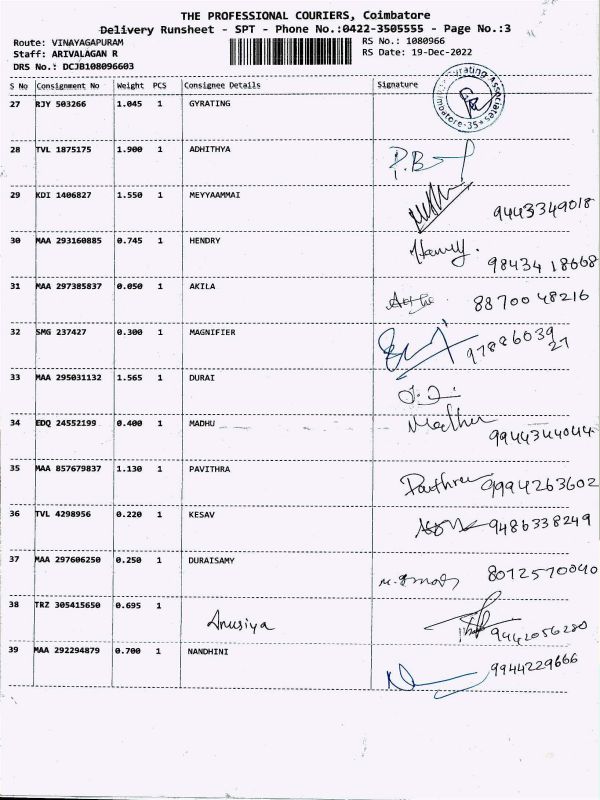 THE PROFESSIONAL COURIERS, Coimbatore
Delivery Runsheet - SPT - Phone No.:0422-3505555 - Page No.:3
Route: VINAYAGAPURAM RS No.: 1080966
Staff: ARIVALAGAN R RS Date: 19-Dec-2022
DRS No.: DCJB108096603
S No Consignment No Weight PCS Consignee Details Signature
27 RJY 503266 1.045 1 GYRATING
28 TVL 1875175 1.900 1 ADHITHYA P.B
29 KDI 1406827 1.550 1 MEYYAAMMAI 9443349018
30 MAA 293160885 0.745 1 HENDRY Henry. 98434 18668
31 MAA 297385837 0.050 1 AKILA 88700 48216
32 SMG 237427 0.300 1 MAGNIFIER 97886039
27
33 MAA 295031132 1.565 1 DURAI
34 EDQ 24552199 0.400 1 MADHU Madhu 9944344044
35 MAA 857679837 1.130 1 PAVITHRA Pavithra 9994263602
36 TVL 4298956 0.220 1 KESAV 9486338249
37 MAA 297606250 0.250 1 DURAISAMY 8072570040
38 TRZ 305415650 0.695 1 Anusiya 9442056280
39 MAA 292294879 0.700 1 NANDHINI 9944229666